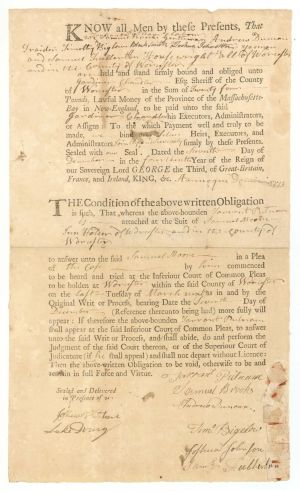 KNOW all Men by these Presents, That
Andrew Duncan
Trader Timothy Bigelow Blacksmith Joshua Johnson yeoman
and Samuel Housewright all of Worcester
and in the County of Worcester
are held and stand firmly bound and obliged unto
Gardiner Chandler Esq; Sheriff of the County
of Worcester in the Sum of Twenty four
Pounds, Lawful Money of the Province of the Massachusetts-
Bay in New-England, to be paid unto the said
Gardiner Chandler his Executors, Administrators,
or Assigns: To the which Payment well and truly to be
made, we bind our selves our Heirs, Executors, and
Administrators, firmly by these Presents.
Sealed with our Seal, Dated the Day of
December in the fourteenth Year of the Reign of
our Sovereign Lord GEORGE the Third, of Great-Britain,
France, and Ireland, KING, &c. Annoque Domini 1773
THE Condition of the above-written Obligation
is such, That whereas the above-bounden Tarrant Putnam
is attached at the Suit of Samuel Moore
Inn Holder of Worcester and in the County of
Worcester
to answer unto the said Samuel Moore in a Plea
of the Case by him commenced
to be heard and tried at the Inferiour Court of Common Pleas
to be holden at Worcester within the said County of Worcester
on the last Tuesday of March next as in and by the
Original Writ or Process, bearing Date the Day of
December (Reference thereunto being had) more fully will
appear: If therefore the above-bounden Tarrant Putnam
shall appear at the said Inferiour Court of Common Pleas, to answer
unto the said Writ or Process, and shall abide, do and perform the
Judgment of the said Court thereon, or of the Superiour Court of
Judicature (if he shall appeal) and shall not depart without Licence:
Then the above-written Obligation to be void, otherwise to be and
remain in full Force and Virtue.
Tarrant Putnam
Sealed and Delivered
in Presence of us,
Samuel Brooks
Andrew Duncan
Timo Bigelow
Joshua Johnson
Sam